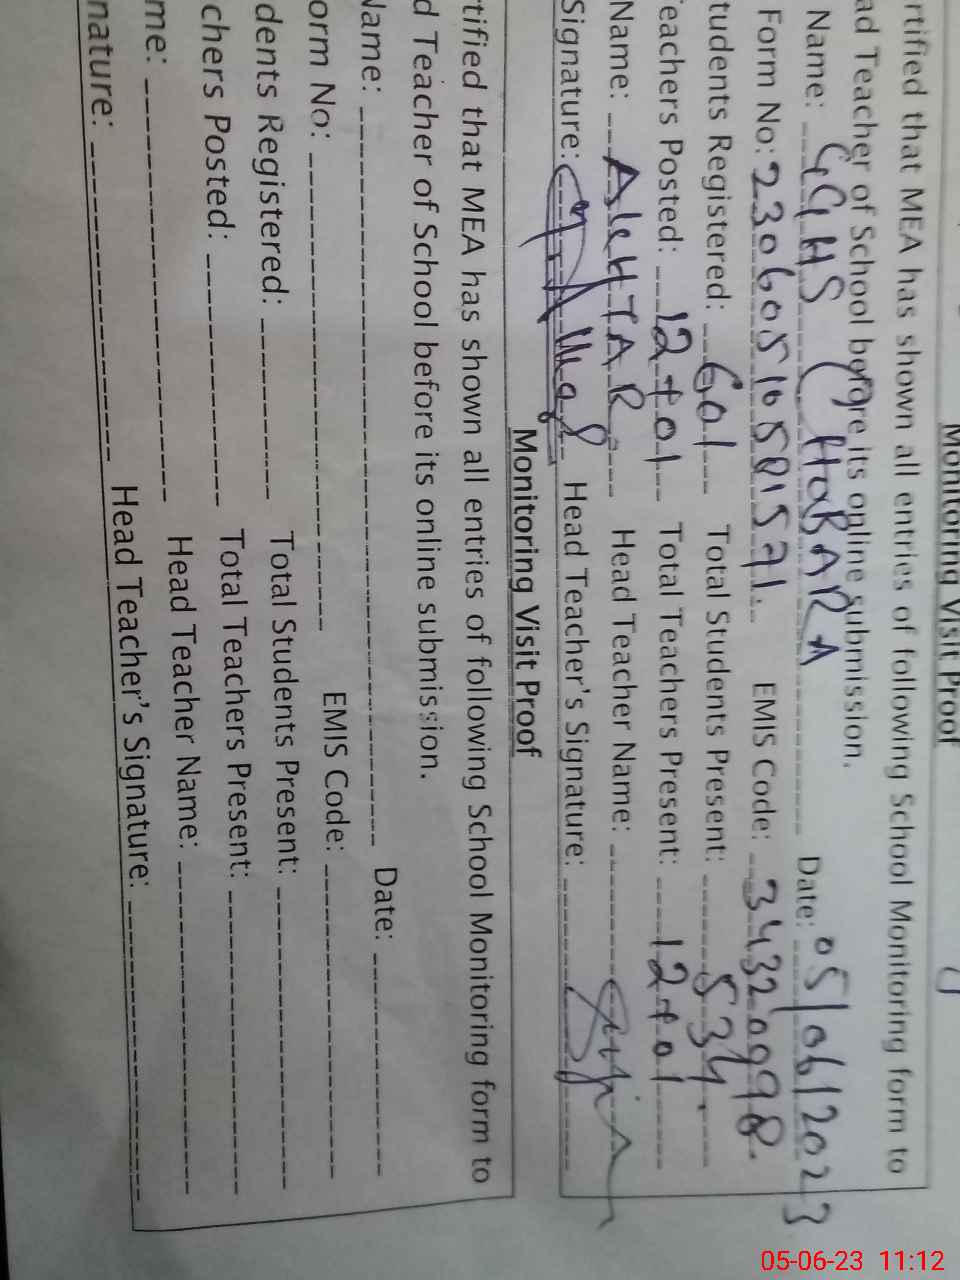 Monitoring Visit Proof
rtified that MEA has shown all entries of following School Monitoring form to
ad Teacher of School before its online submission.
Name: GGHS Date: 05/06/2023
Form No: EMIS Code: 34320998.
tudents Registered: 601 Total Students Present: 534.
eachers Posted: 12+01 Total Teachers Present: 12+01
Name: AKHTAR Head Teacher Name:
Signature: Head Teacher's Signature:
Monitoring Visit Proof
rtified that MEA has shown all entries of following School Monitoring form to
d Teacher of School before its online submission.
Name: Date:
orm No: EMIS Code:
dents Registered: Total Students Present:
chers Posted: Total Teachers Present:
me: Head Teacher Name:
nature: Head Teacher's Signature:
05-06-23 11:12